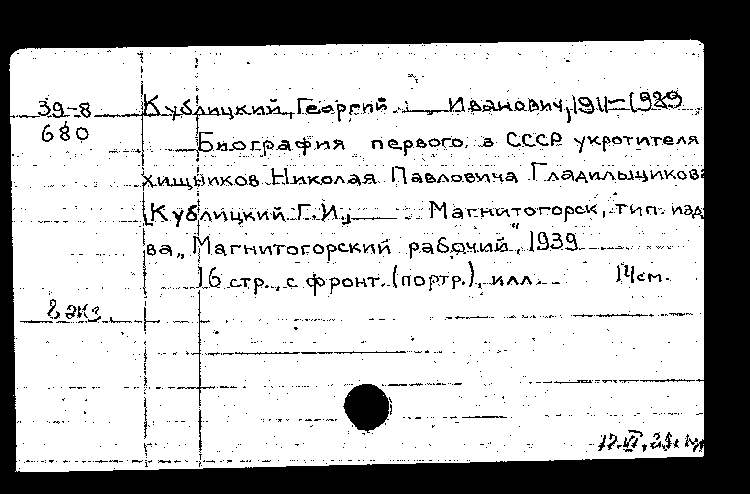 39-8 Кублицкий, Георгий Иванович, 1911-1989
680 Биография первого в СССР укротителя
хищников Николая Павловича Гладильщикова
[Кублицкий Г.И., Магнитогорск, тип. изд-
ва „Магнитогорский рабочий", 1939
16 стр., с фронт. (портр.), илл. 14 см.
8 экз.
17.VI.